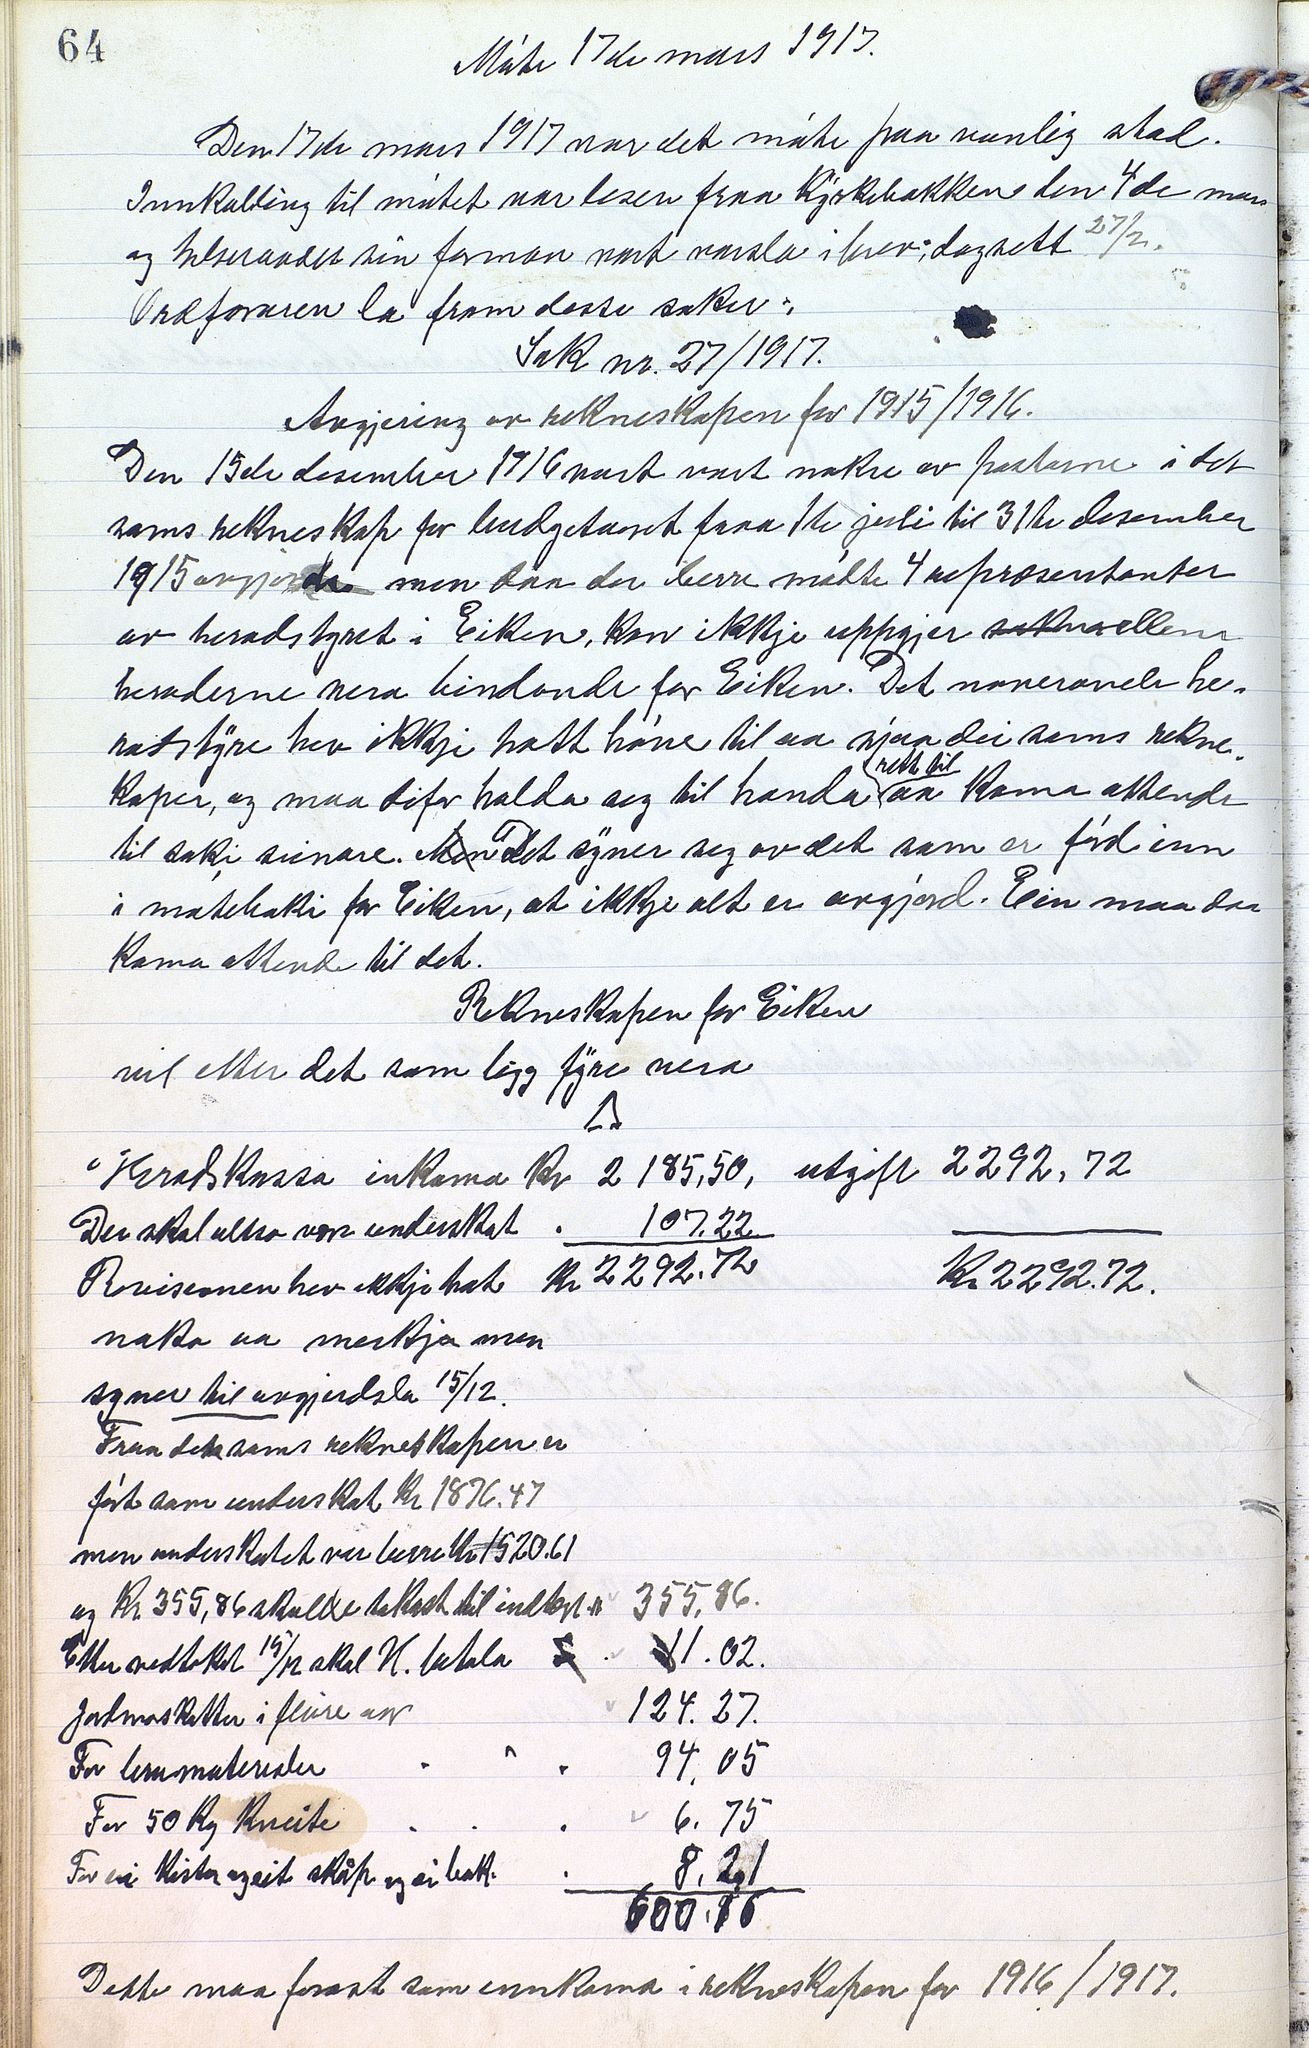 64
Møte 17de mars 1917.
Den 17de mars 1917 var det møte paa vanlig stad.
Innkalding til møtet var lesen fraa Kyrkebakken den 4de mars
og helseraadet sin formann vart varsla i brev, dagsett 27/2.
Ordføraren la fram desse saker:
Sak nr. 27/1917.
Avgjering av rekneskapen for 1915/1916.
Den 15de desember 1916 vart vart nokre av postarne i det
sams rekneskap for budgetaaret fraa 1te juli til 31te desember
1915 avgjorde men daa der berre møtte 4 representanter
av heradstyret i Eiken, kan ikkje uppgjer
heraderne vera bindande for Eiken. Det noverande he-
radstyre hev ikkje hatt høve til aa sjaa dei sams rekne-
kaper, og maa difor halda seg til handa rett til aa koma attende
til saki seinare. Det syner seg av det som er ført inn
i møteboki for Eiken, at ikkje alt er avgjord. Ein maa daa
koma attende til det.
Rekneskapen for Eiken
vil etter det som ligg fyre vera
Heradskassa inkoma Kr 2 185,50, utgift 2292,72
Der skal altso vera underskot 107.22
Revisionen hev ikkje hat Kr 2292.72 Kr 2292.72.
noko aa merkja men
syner til avgjerdsla 15/12.
Fraa den sams rekneskapen er
ført som underskot Kr 1876.47
men underskotet var berre Kr 1520.61
og Kr. 355,86 skulde takast til indtegt 355,86.
Etter vedtaket 15/12 skal H. betala 11.02.
Jordmorskatter i fleire aar 124.27.
For brumaterialer " 94,05
For 50 Kg Kveite 6.75
For ei kista og eit skåp og ei bok. 8,21
600.16
Dette maa førast som innkoma i rekneskapen for 1916/1917.